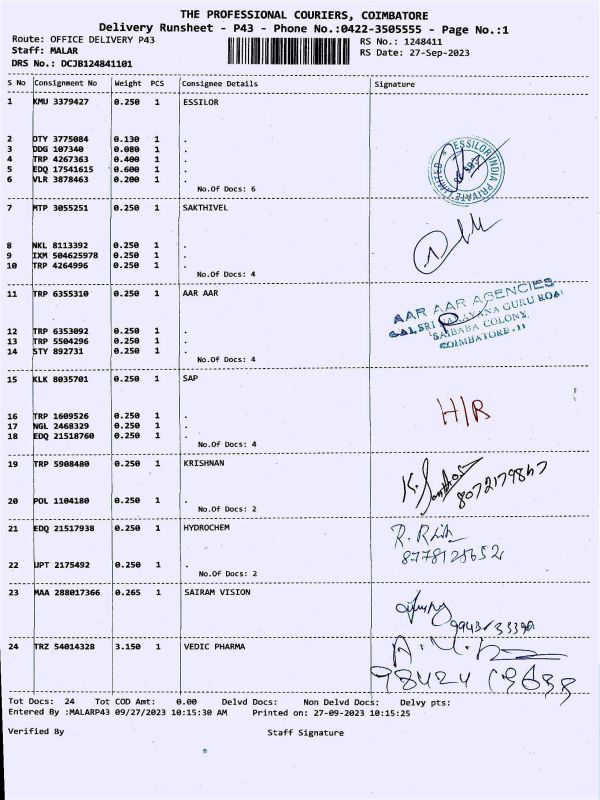 THE PROFESSIONAL COURIERS, COIMBATORE
Delivery Runsheet - P43 - Phone No.:0422-3505555 - Page No.:1
Route: OFFICE DELIVERY P43 RS No.: 1248411
Staff: MALAR RS Date: 27-Sep-2023
DRS No.: DCJB124841101
S No Consignment No Weight PCS Consignee Details Signature
1 KMU 3379427 0.250 1 ESSILOR
2 OTY 3775084 0.130 1 .
3 DDG 107340 0.080 1 .
4 TRP 4267363 0.400 1 .
5 EDQ 17541615 0.600 1 .
6 VLR 3878463 0.200 1 .
No.Of Docs: 6
ESSILOR INDIA PRIVATE LIMITED
7 MTP 3055251 0.250 1 SAKTHIVEL
8 NKL 8113392 0.250 1 .
9 IXM 504625978 0.250 1 .
10 TRP 4264996 0.250 1 .
No.Of Docs: 4
11 TRP 6355310 0.250 1 AAR AAR
AAR AAR AGENCIES
SRI NARAYANA GURU ROAD
SAIBABA COLONY,
COIMBATORE-11
12 TRP 6353092 0.250 1 .
13 TRP 5504296 0.250 1 .
14 STY 892731 0.250 1 .
No.Of Docs: 4
15 KLK 8035701 0.250 1 SAP
H/R
16 TRP 1609526 0.250 1 .
17 NGL 2468329 0.250 1 .
18 EDQ 21518760 0.250 1 .
No.Of Docs: 4
19 TRP 5908480 0.250 1 KRISHNAN
8072179867
20 POL 1104180 0.250 1 .
No.Of Docs: 2
21 EDQ 21517938 0.250 1 HYDROCHEM
8778128652
22 UPT 2175492 0.250 1 .
No.Of Docs: 2
23 MAA 288017366 0.265 1 SAIRAM VISION
24 TRZ 54014328 3.150 1 VEDIC PHARMA
Tot Docs: 24 Tot COD Amt: 0.00 Delvd Docs: Non Delvd Docs: Delvy pts:
Entered By :MALARP43 09/27/2023 10:15:30 AM Printed on: 27-09-2023 10:15:25
Verified By Staff Signature